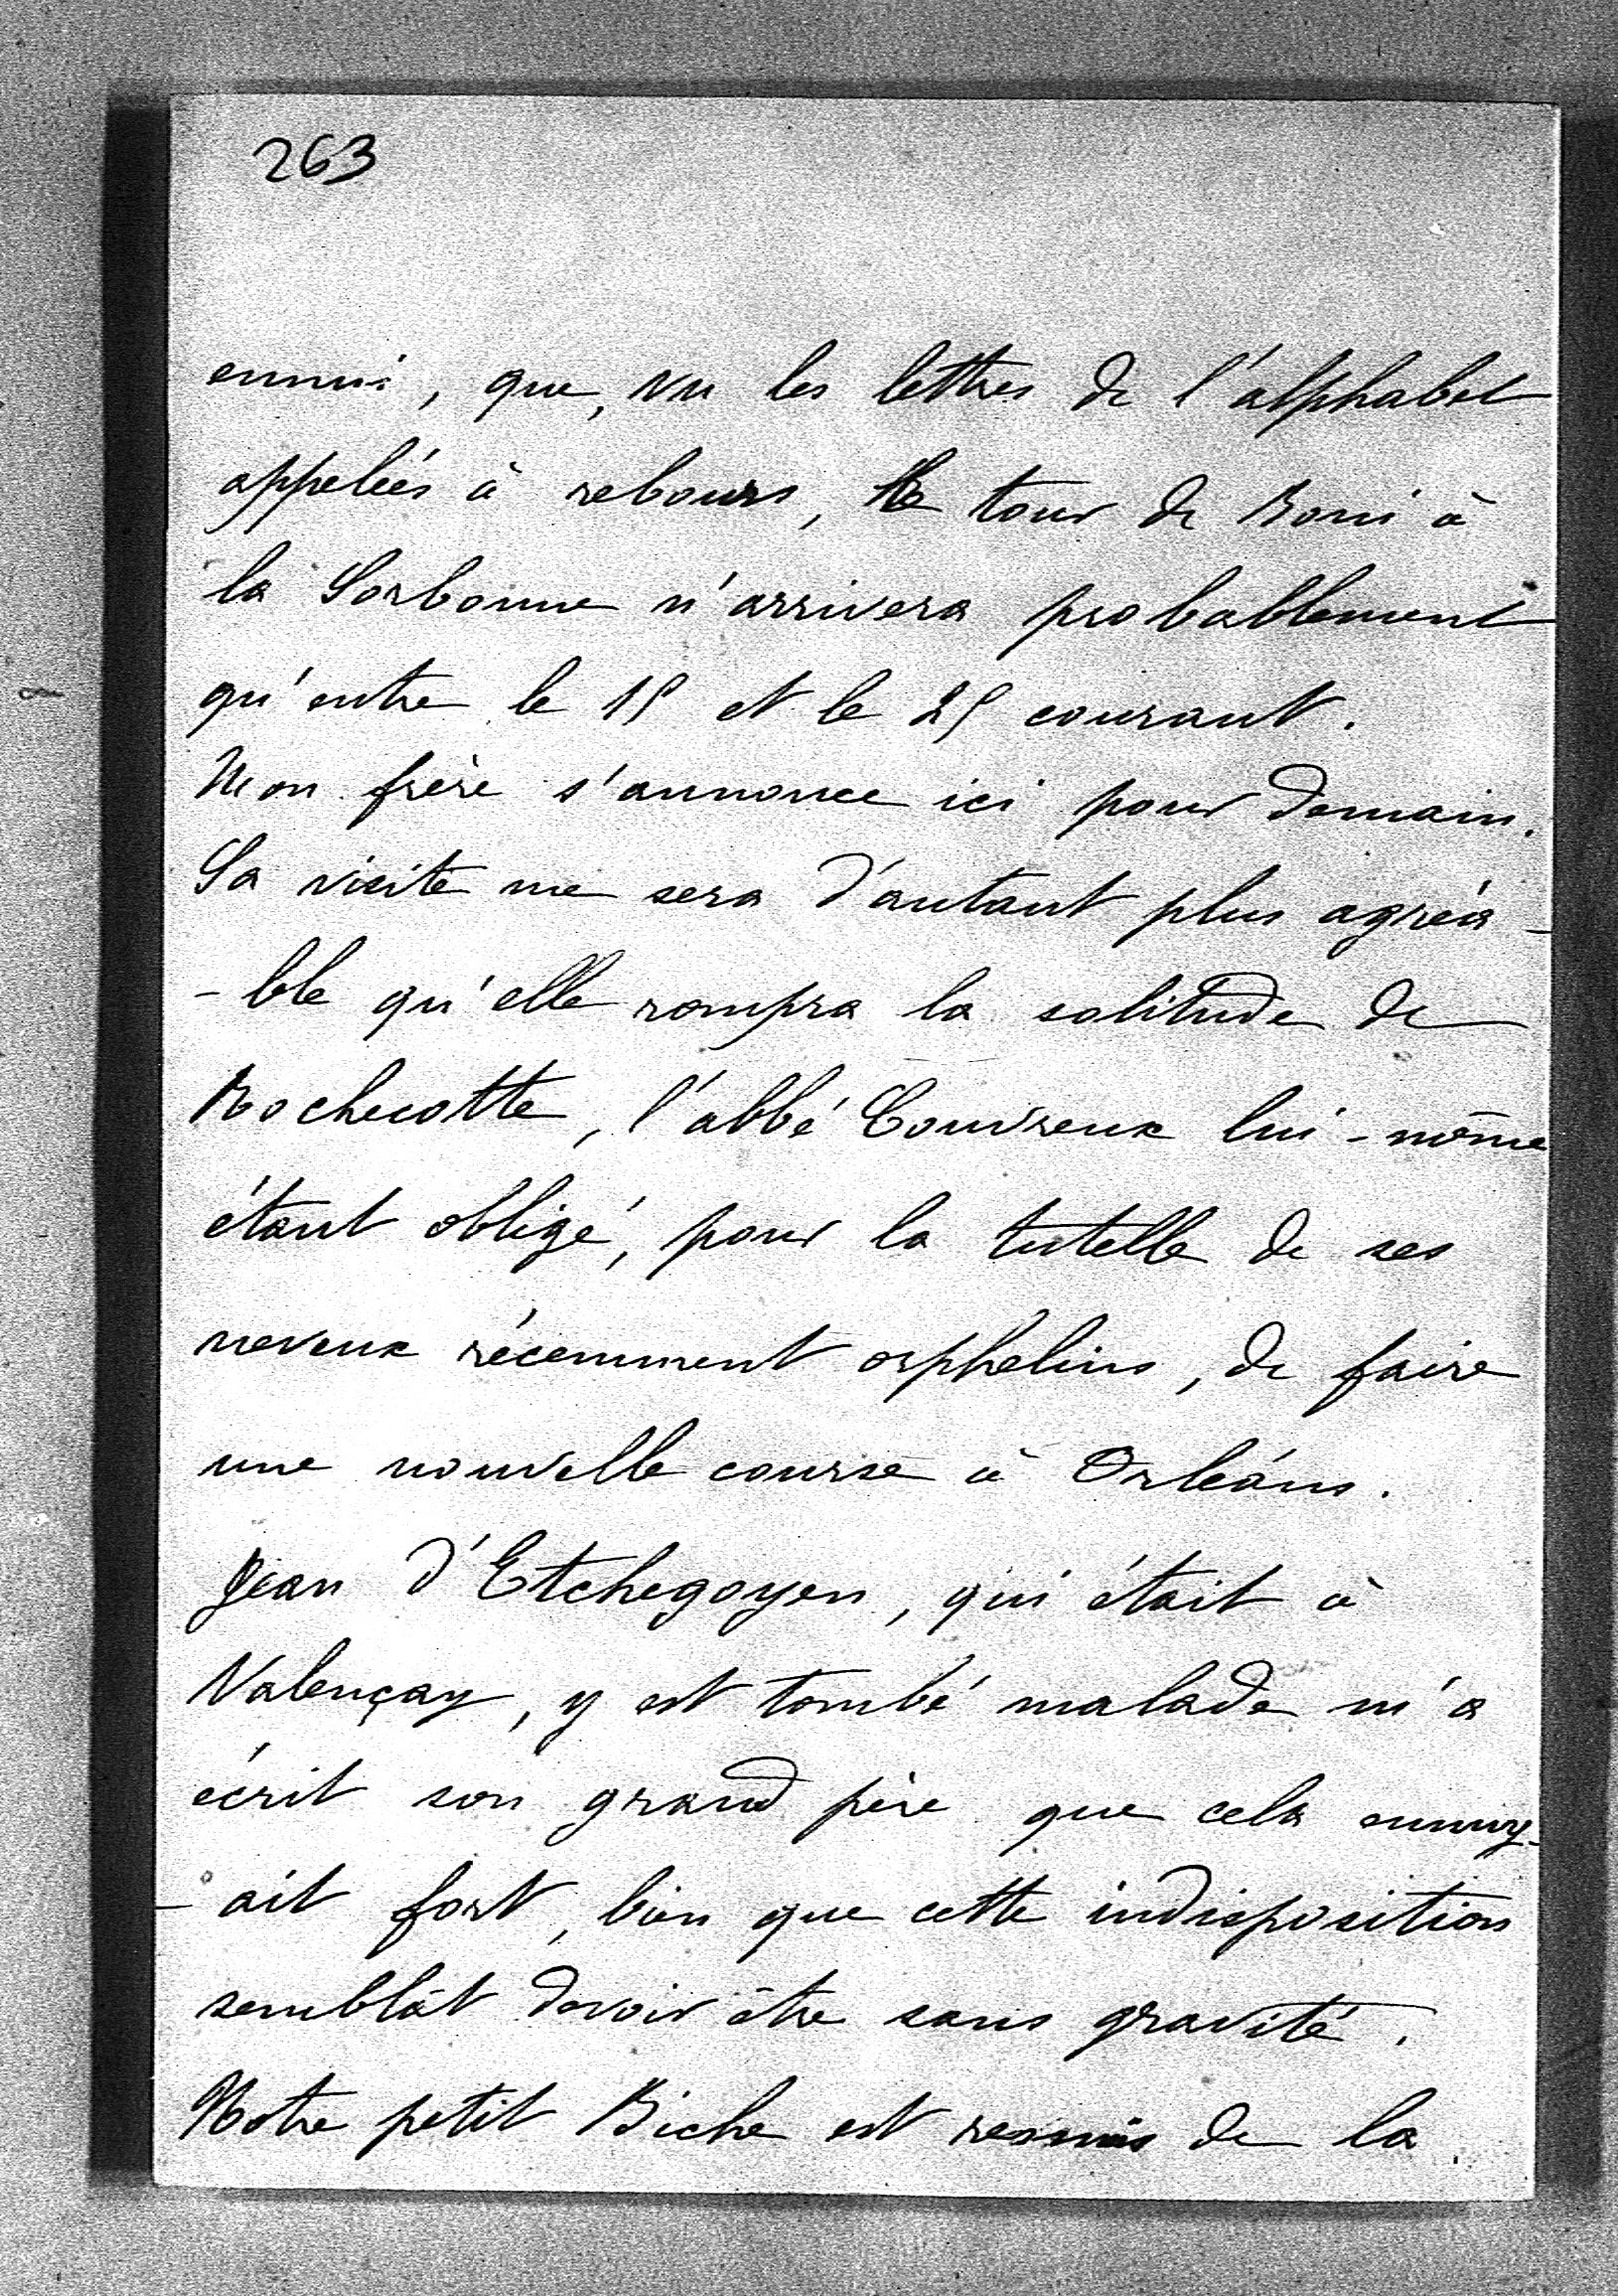 263
ennui, que, vu les lettres de l'alphabet
appelées à rebours, le tour de Boni à
la Sorbonne n'arrivera probablement
qu'entre le 15 et le 25 courant.
Mon frère s'annonce ici pour demain.
Sa visite me sera d'autant plus agréa-
-ble qu'elle rompra la solitude de
Rochecotte, l'abbé Couvreux lui-même
étant obligé, pour la tutelle de ses
neveux récemment orphelins, de faire
une nouvelle course à Orléans.
Jean d'Etchegoyen, qui était à
Valençay, y est tombé malade m'a
écrit son grand père que cela ennuy-
-ait fort, bien que cette indisposition
semblât devoir être sans gravité.
Notre petit Biche est remis de la